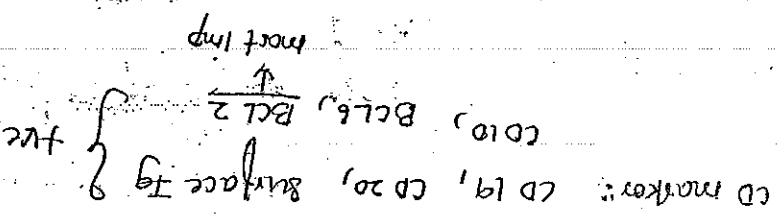 CD marker: CD 19, CD 20, surface Ig } +ve
CD10, BCL6, BCL 2
↓
most imp